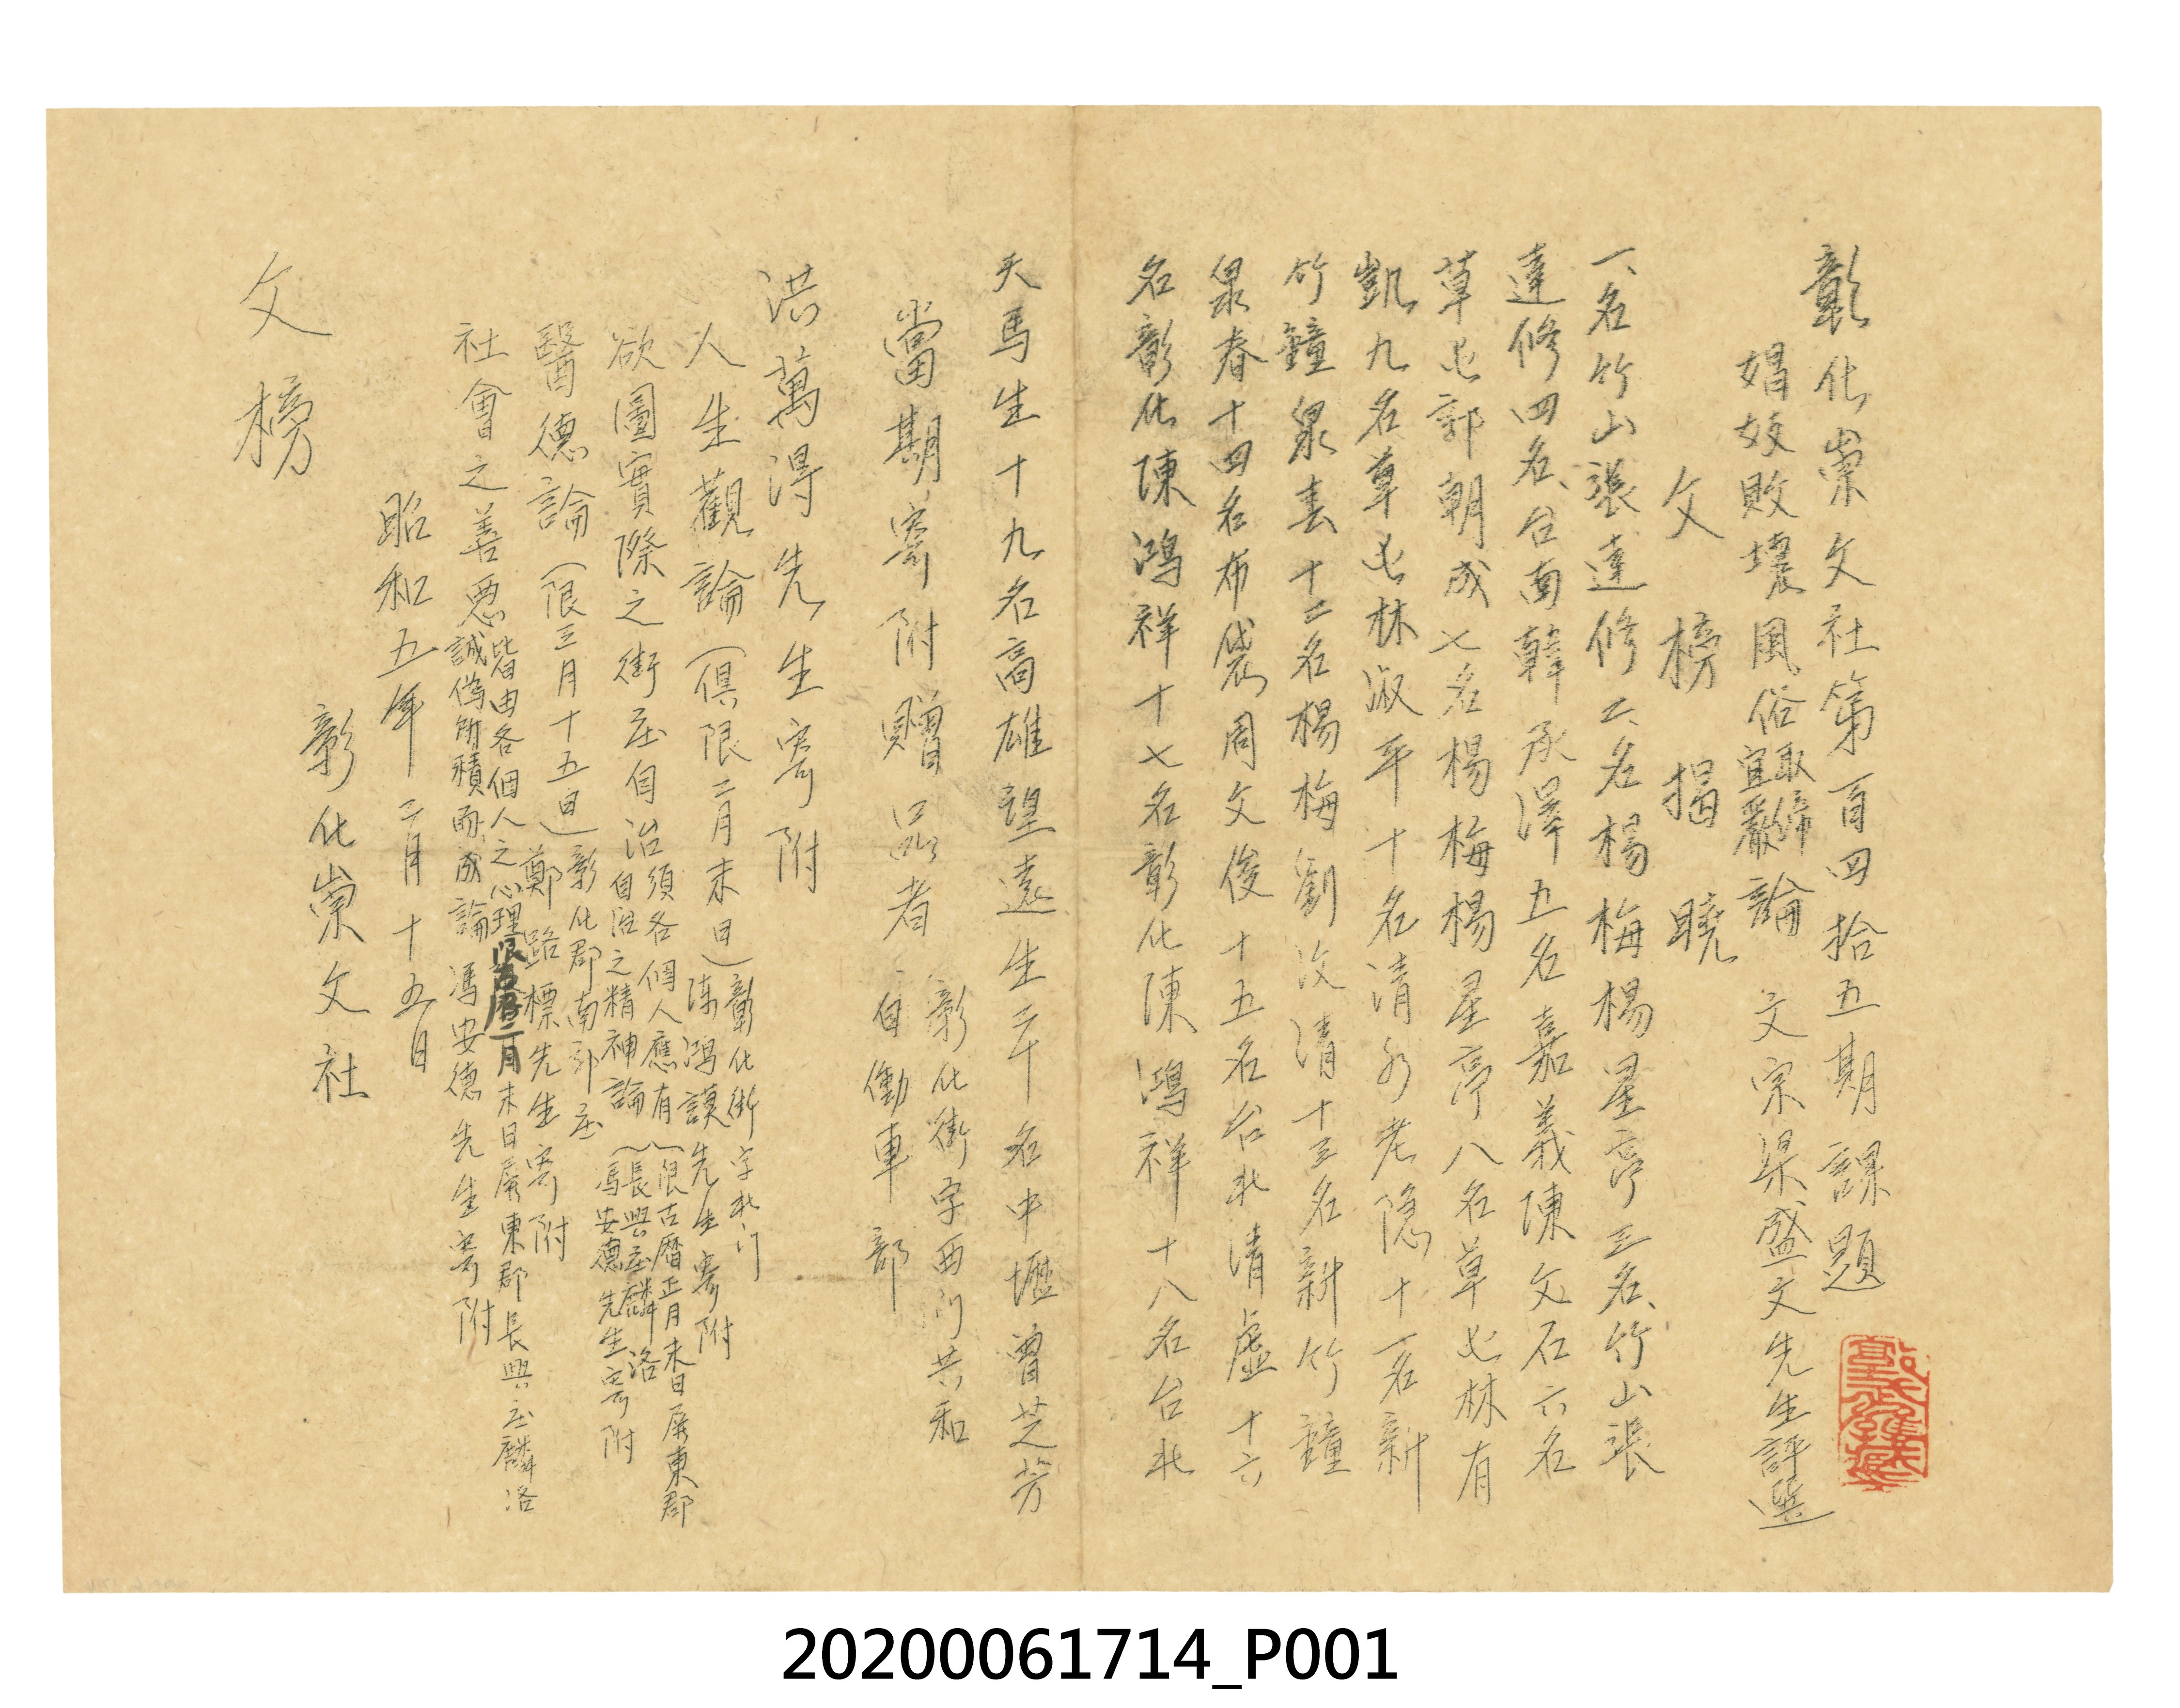 彰化崇文社第百四拾五期課題
娼妓敗壞風俗宜嚴取締論 文宗梁盛文先生評選
文榜揭曉
一、名竹山張達修二、名楊梅楊星亭三名、竹山張
達修四名、台南韓承澤五名嘉義陳文石六名
草屯郭朝成七名楊梅楊星亭八名草屯林有
凱九名草屯林淑平十名清水老隱十一名新
竹鐘泉春十二名楊梅劉汶清十三名新竹鐘
泉春十四名布袋周文俊十五名台北清虛十六
名彰化陳鴻祥十七名彰化陳鴻祥十八名台北
天馬生十九名高雄望遠生二十名中壢曾芝芳
當期寄附贈品者 彰化街字西門共和
自働車部
洪萬得先生寄附
人生觀論(俱限二月末日)彰化街字北門
陳鴻謨先生寄附
欲圖實際之街庄自治須各個人應有
自治之精神論(限古曆正月末日屏東郡
長興庄麟洛
馮安德先生寄附
醫德論(限三月十五日)彰化郡南郭庄
鄭路標先生寄附
社會之善惡皆由各個人之心理
誠偽所積而成論 限古曆二月末日屏東郡長興庄麟洛
馮安德先生寄附
昭和五年二月十五日
彰化崇文社
文榜
20200061714_P001